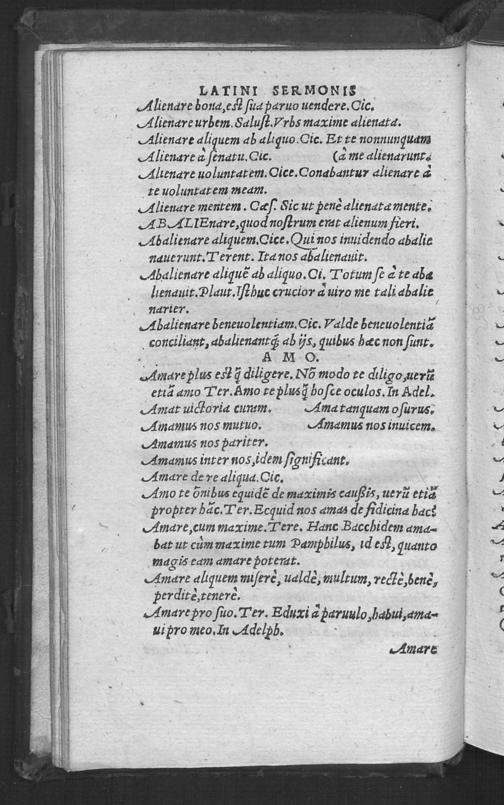 LATINI SERMONIS
Alienare bona, est sua paruo uendere. Cic.
Alienare urbem. Salust. Vrbs maxime alienata.
Alienare aliquem ab aliquo. Cic. Et te nonnunquam
Alienare à senatu. Cic. (à me alienarunt.
Alienare uoluntatem. Cice. Conabantur alienare à
te uoluntatem meam.
Alienare mentem. Cæs. Sic ut penè alienata mente.
ABALIEnare, quod nostrum erat alienum fieri.
Abalienare aliquem. Cice. Qui nos inuidendo abalie
nauerunt. Terent. Ita nos abalienauit.
Abalienare aliquē ab aliquo. Ci. Totum se à te aba
lienauit. Plaut. Isthuc crucior à uiro me tali abalie
narier.
Abalienare beneuolentiam. Cic. Valde beneuolentiā
conciliant, abalienantq́; ab ijs, quibus hæc non sunt.
AMO.
Amare plus est q̃ diligere. Nō modo te diligo, uerū
etiā amo Ter. Amo te plus q̃ hosce oculos. In Adel.
Amat uictoria curam. Ama tanquam osurus.
Amamus nos mutuo. Amamus nos inuicem.
Amamus nos pariter.
Amamus inter nos, idem significant.
Amare de re aliqua. Cic.
Amo te ōnibus equidē de maximis caußis, uerū etiā
propter hāc. Ter. Ecquid nos amas de fidicina hac?
Amare, cum maxime. Tere. Hanc Bacchidem ama-
bat ut cùm maxime tum Pamphilus, id est, quanto
magis eam amare poterat.
Amare aliquem miserè, ualdè, multum, rectè, benè,
perditè, tenerè.
Amare pro suo. Ter. Eduxi à paruulo, habui, ama-
ui pro meo. In Adelph.
Amare